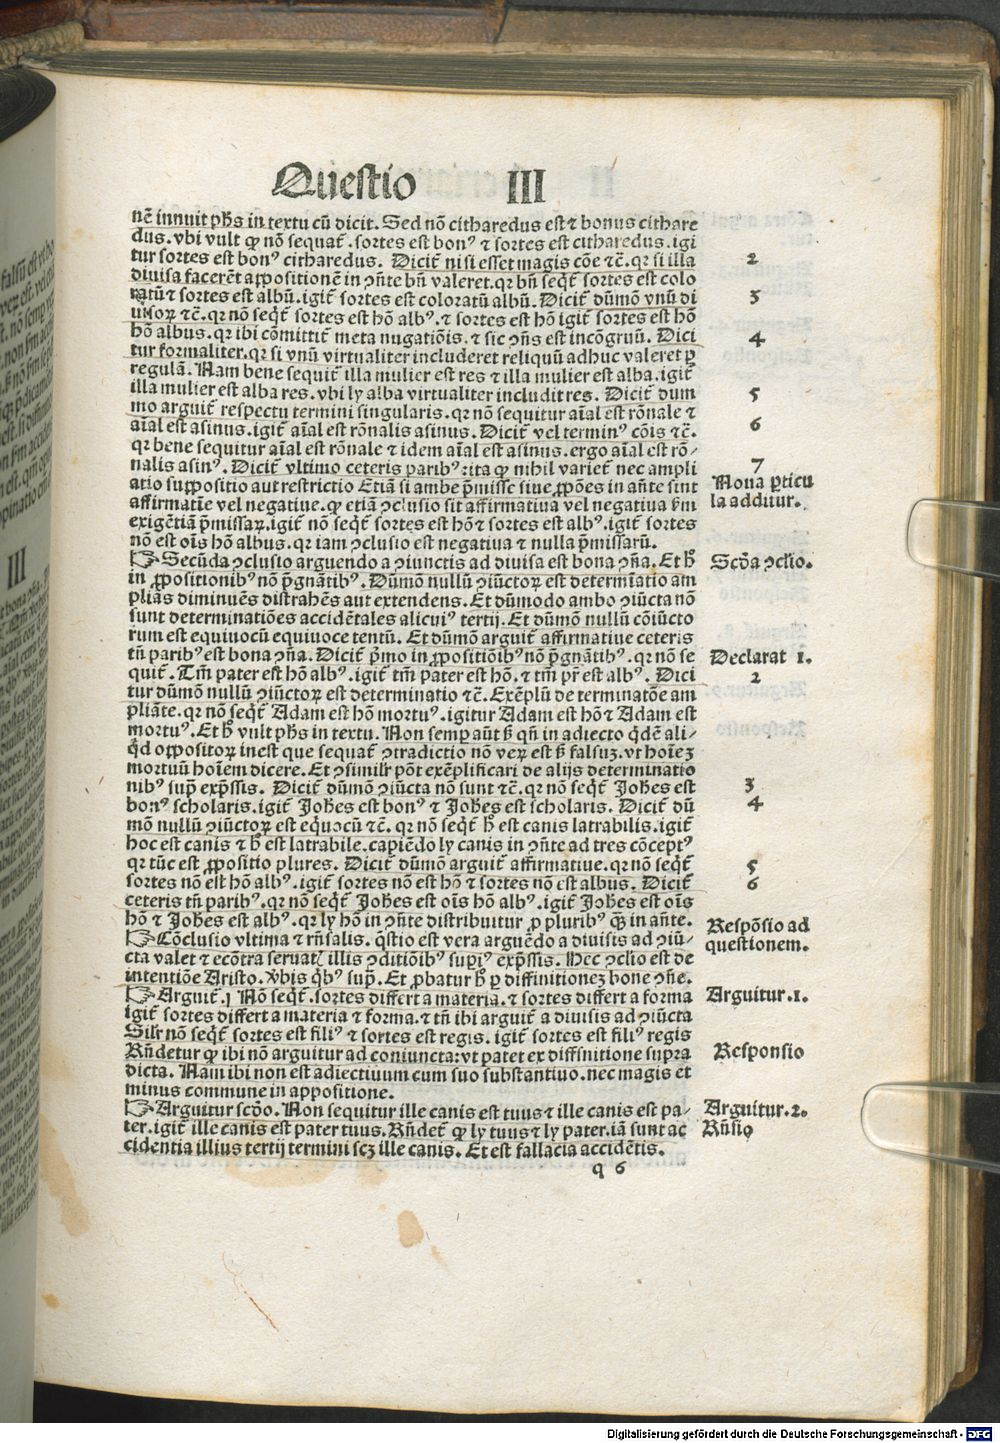 Questio III
nē innuit phs in textu cū dicit. Sed nō citharedus est ⁊ bonus cithare
dus. vbi vult ꝙ nō sequat̄. sortes est bonꝰ ⁊ sortes est citharedus. igi
tur sortes est bonꝰ citharedus. Dicit̄ nisi esset magis cōe ⁊c̄. qr si illa 2
diuisa facerēt appositionē in ꝯn̄te bn̄ valeret. qr bn̄ seqt̄ sortes est colo
ratū ⁊ sortes est albū. igit̄ sortes est coloratū albū. Dicit̄ dūmō vnū di 3
uisoꝝ ⁊c̄. qr nō seqt̄ sortes est hō albꝰ. ⁊ sortes est hō igit̄ sortes est hō
hō albus. qr ibi cōmittit̄ meta nugatiōis. ⁊ sic ꝯn̄s est incōgruū. Dici 4
tur formaliter. qr si vnū virtualiter includeret reliquū adhuc valeret ꝑ
regulā. Nam bene sequit̄ illa mulier est res ⁊ illa mulier est alba. igit̄
illa mulier est alba res. vbi ly alba virtualiter includit res. Dicit̄ dum 5
mo arguit̄ respectu termini singularis. qr nō sequitur aīal est rōnale ⁊
aīal est asinus. igit̄ aīal est rōnalis asinus. Dicit̄ vel terminꝰ cōis ⁊c̄. 6
qr bene sequitur aīal est rōnale ⁊ idem aīal est asinus. ergo aīal est rō-
nalis asinꝰ. Dicit̄ vltimo ceteris paribꝰ: ita ꝙ nihil variet̄ nec ampli 7
atio suppositio aut restrictio Etiā si ambe p̄misse siue ꝓpōes in an̄te sint Noua ꝑticu
affirmatīe vel negatiue. ꝙ etiā ꝯclusio sit affirmatiua vel negatiua ẜm la additur.
exigētiā p̄missaꝝ. igit̄ nō seqt̄ sortes est hō ⁊ sortes est albꝰ. igit̄ sortes
nō est oīs hō albus. qr iam ꝯclusio est negatiua ⁊ nulla p̄missarū.
☞ Secūda ꝯclusio arguendo a ꝯiunctis ad diuisa est bona ꝯn̄a. Et h̄ Scd̄a ꝯclio.
in ꝓpositionibꝰ nō p̄gnātibꝰ. Dūmō nullū ꝯiūctoꝝ est determīatio am
pliās diminuēs distrahēs aut extendens. Et dūmodo ambo ꝯiūcta nō
sunt determinatiōes accidētales alicuiꝰ tertij. Et dūmō nullū cōiūcto
rum est equiuocū equiuoce tentū. Et dūmō arguit̄ affirmatiue ceteris
tn̄ paribꝰ est bona ꝯn̄a. Dicit̄ p̄mo in ꝓpositiōibꝰ nō p̄gnātibꝰ. qr nō se Declarat 1.
quit̄. Tm̄ pater est hō albꝰ. igit̄ tm̄ pater est hō. ⁊ tm̄ pr̄ est albꝰ. Dici 2
tur dūmō nullū ꝯiūctoꝝ est determinatio ⁊c̄. Exēplū de terminatōe am
pliāte. qr nō seqt̄ Adam est hō mortuꝰ. igitur Adam est hō ⁊ Adam est
mortuꝰ. Et h̄ vult phs in textu. Non semꝑ aūt ẜ qn̄ in adiecto qdē ali-
qd oppositoꝝ inest que sequat̄ ꝯtradictio nō veꝝ est ẜ falsuꝫ. vt hoīeꝫ
mortuū hoīem dicere. Et ꝯsimilr̄ pōt exēplificari de alijs determinatio
nibꝰ supꝰ exp̄ssis. Dicit̄ dūmō ꝯiūcta nō sunt ⁊c̄. qr nō seqt̄ Johēs est 3
bonꝰ scholaris. igit̄ Johēs est bonꝰ ⁊ Johēs est scholaris. Dicit̄ dū 4
mō nullū ꝯiūctoꝝ est eqͦuocū ⁊c̄. qr nō seqt̄ h̄ est canis latrabilis. igit̄
hoc est canis ⁊ h̄ est latrabile. capiēdo ly canis in ꝯn̄te ad tres cōceptꝰ
qr tūc est ꝓpositio plures. Dicit̄ dūmō arguit̄ affirmatiue. qr nō seqt̄ 5
sortes nō est hō albꝰ. igit̄ sortes nō est hō ⁊ sortes nō est albus. Dicit̄ 6
ceteris tn̄ paribꝰ. qr nō seqt̄ Johēs est oīs hō albꝰ. igit̄ Johēs est oīs
hō ⁊ Johēs est albꝰ. qr ly hō in ꝯn̄te distribuitur ꝓ pluribꝰ qͣꝫ in an̄te. Respōsio ad
☞ Cōclusio vltima ⁊ rn̄salis. qͦstio est vera arguēdo a diuisis ad ꝯiū- questionem.
cta valet ⁊ ecōtra seruatꝭ illis ꝯditiōibꝰ supiꝰ exp̄ssis. Hec ꝯclio est de
intentiōe Aristo. v̄bis qͥbꝰ supͣ. Et ꝓbatur h̄ ꝑ diffinitioneꝫ bone ꝯn̄e.
☞ Arguit̄. j Nō seqt̄. sortes differt a materia. ⁊ sortes differt a forma Arguitur. 1.
igit̄ sortes differt a materia ⁊ forma. ⁊ tn̄ ibi arguit̄ a diuisis ad ꝯiūcta
Silr̄ nō seqt̄ sortes est filiꝰ ⁊ sortes est regis. igit̄ sortes est filiꝰ regis
Rn̄detur ꝙ ibi nō arguitur ad coniuncta: vt patet ex diffinitione supra Responsio
dicta. Nam ibi non est adiectiuum cum suo substantiuo. nec magis et
minus commune in appositione.
☞ Arguitur scd̄o. Non sequitur ille canis est tuus ⁊ ille canis est pa- Arguitur. 2.
ter. igit̄ ille canis est pater tuus. Rn̄det̄ ꝙ ly tuus ⁊ ly pater. iā sunt ac Rn̄sio
cidentia illius tertij termini scꝫ ille canis. Et est fallacia accidētis.
q 6
Digitalisierung gefördert durch die Deutsche Forschungsgemeinschaft - DFG